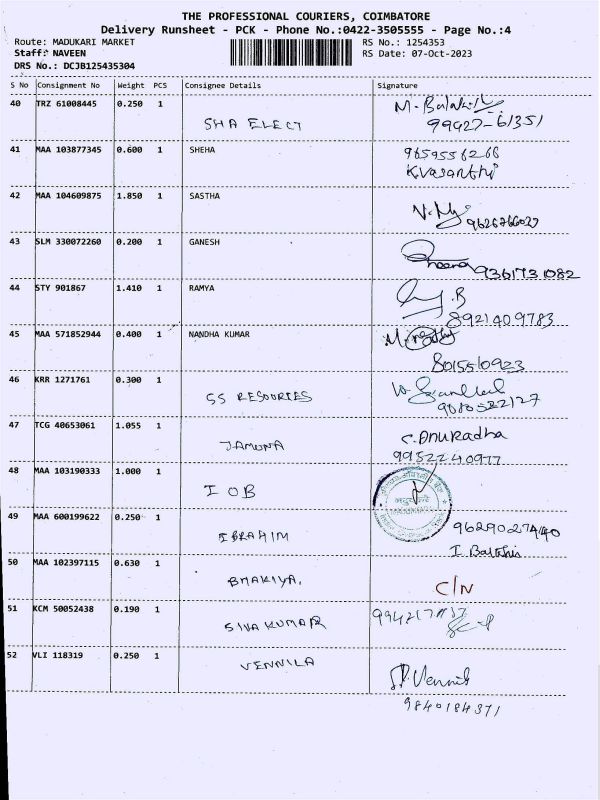 THE PROFESSIONAL COURIERS, COIMBATORE
Delivery Runsheet - PCK - Phone No.:0422-3505555 - Page No.:4
Route: MADUKARI MARKET RS No.: 1254353
Staff: NAVEEN RS Date: 07-Oct-2023
DRS No.: DCJB125435304
S No Consignment No Weight PCS Consignee Details Signature
40 TRZ 61008445 0.250 1 SHA ELECT
99427-61351
41 MAA 103877345 0.600 1 SHEHA 9659556266
K.Vasanthi
42 MAA 104609875 1.850 1 SASTHA
9626766027
43 SLM 330072260 0.200 1 GANESH
9361731082
44 STY 901867 1.410 1 RAMYA
8921409783
45 MAA 571852944 0.400 1 NANDHA KUMAR
8015510923
46 KRR 1271761 0.300 1 SS RESOURIES
9080522127
47 TCG 40653061 1.055 1 JAMUNA C. Anuradha
9952240977
48 MAA 103190333 1.000 1 IOB
49 MAA 600199622 0.250 1 IBRAHIM
50 MAA 102397115 0.630 1 BHAKIYA. C/N
51 KCM 50052438 0.190 1 SIVA KUMAR
52 VLI 118319 0.250 1 VENNILA
9840184371